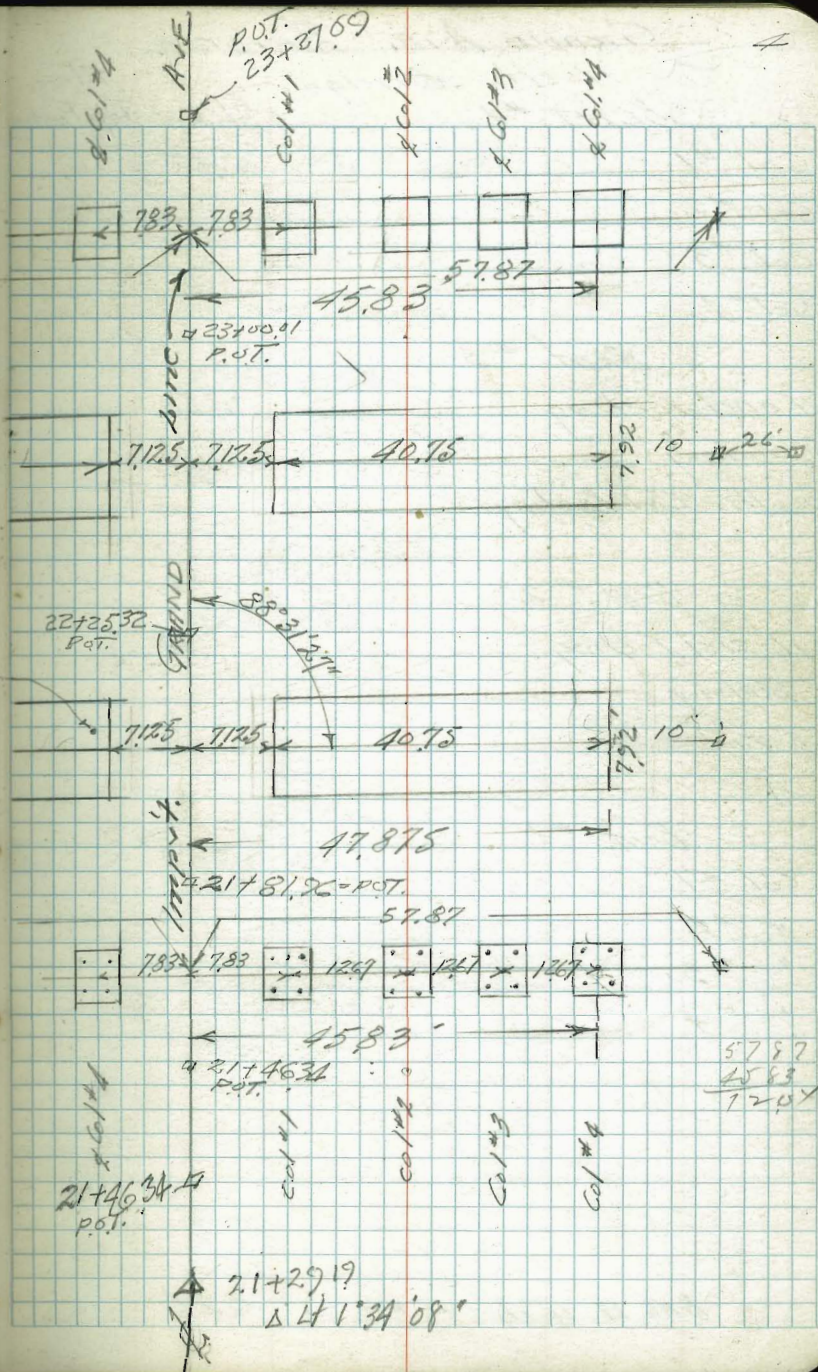 4
P.O.T.
23+27.69
AVE
Col #1
Col #2
Col #3
Col #4
7.83 7.83
57.87
45.83
23+00.01
P.O.T.
7.125 7.125 40.75 7.92 10 26'
GRAND
22+25.32
P.O.T.
88°31'27"
7.125 7.125 40.75 7.92' 10'
Imprvt.
47.875
21+81.96=P.O.T.
57.87
7.83 7.83 12.69 12.67 12.67
45.83'
21+46.34
P.O.T.
57 87
45 83
12 04
Col #1
Col #2
Col #3
Col #4
21+46.34
P.O.T.
21+29.19
Δ Lt 1°34'08"